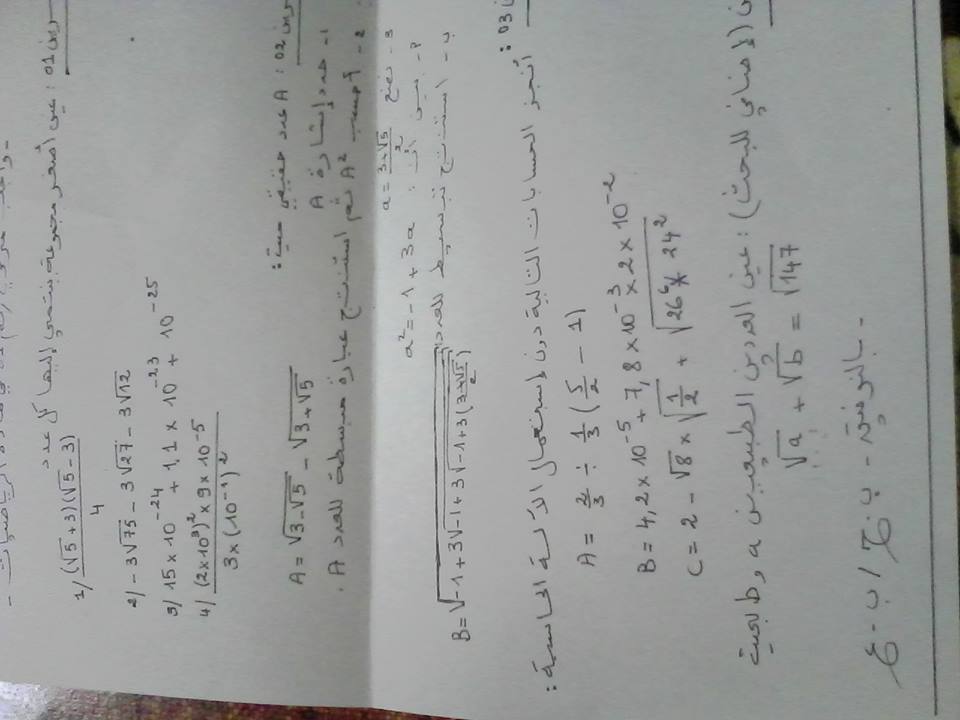 تمرين 01 : عين أصغر مجموعة ينتمي إليها كل عدد
1/ (√5 + 3)(√5 - 3) / 4
2/ - 3√75 - 3√27 - 3√12
3/ 15 × 10⁻²⁴ + 1,1 × 10⁻²³ + 10⁻²⁵
4/ (2×10³)² × 9 × 10⁻⁵ / 3 × (10⁻¹)²
تمرين 02 : A عدد حقيقي حيث :
A = √(3-√5) - √(3+√5)
1 - حدد إشارة A
2 - أحسب A² ثم استنتج عبارة مبسطة للعدد A .
3 - نضع a = (3+√5)/2
بين أن : a² = -1 + 3a
استنتج تبسيط للعدد
B = √(-1 + 3√(-1 + 3√(-1 + 3((3+√5)/2))))
03 : أنجز الحسابات التالية دون إستعمال الآلة الحاسبة :
A = 2/3 ÷ 1/3 (5/2 - 1)
B = 4,2 × 10⁻⁵ + 7,8 × 10⁻³ × 2 × 10⁻²
C = 2 - √8 × √(1/2) +
(إضافي للبحث) : عين العددين الطبيعيين a و b حيث
√a + √b = √147
- بالتوفيق - ب. ع / ب. ع